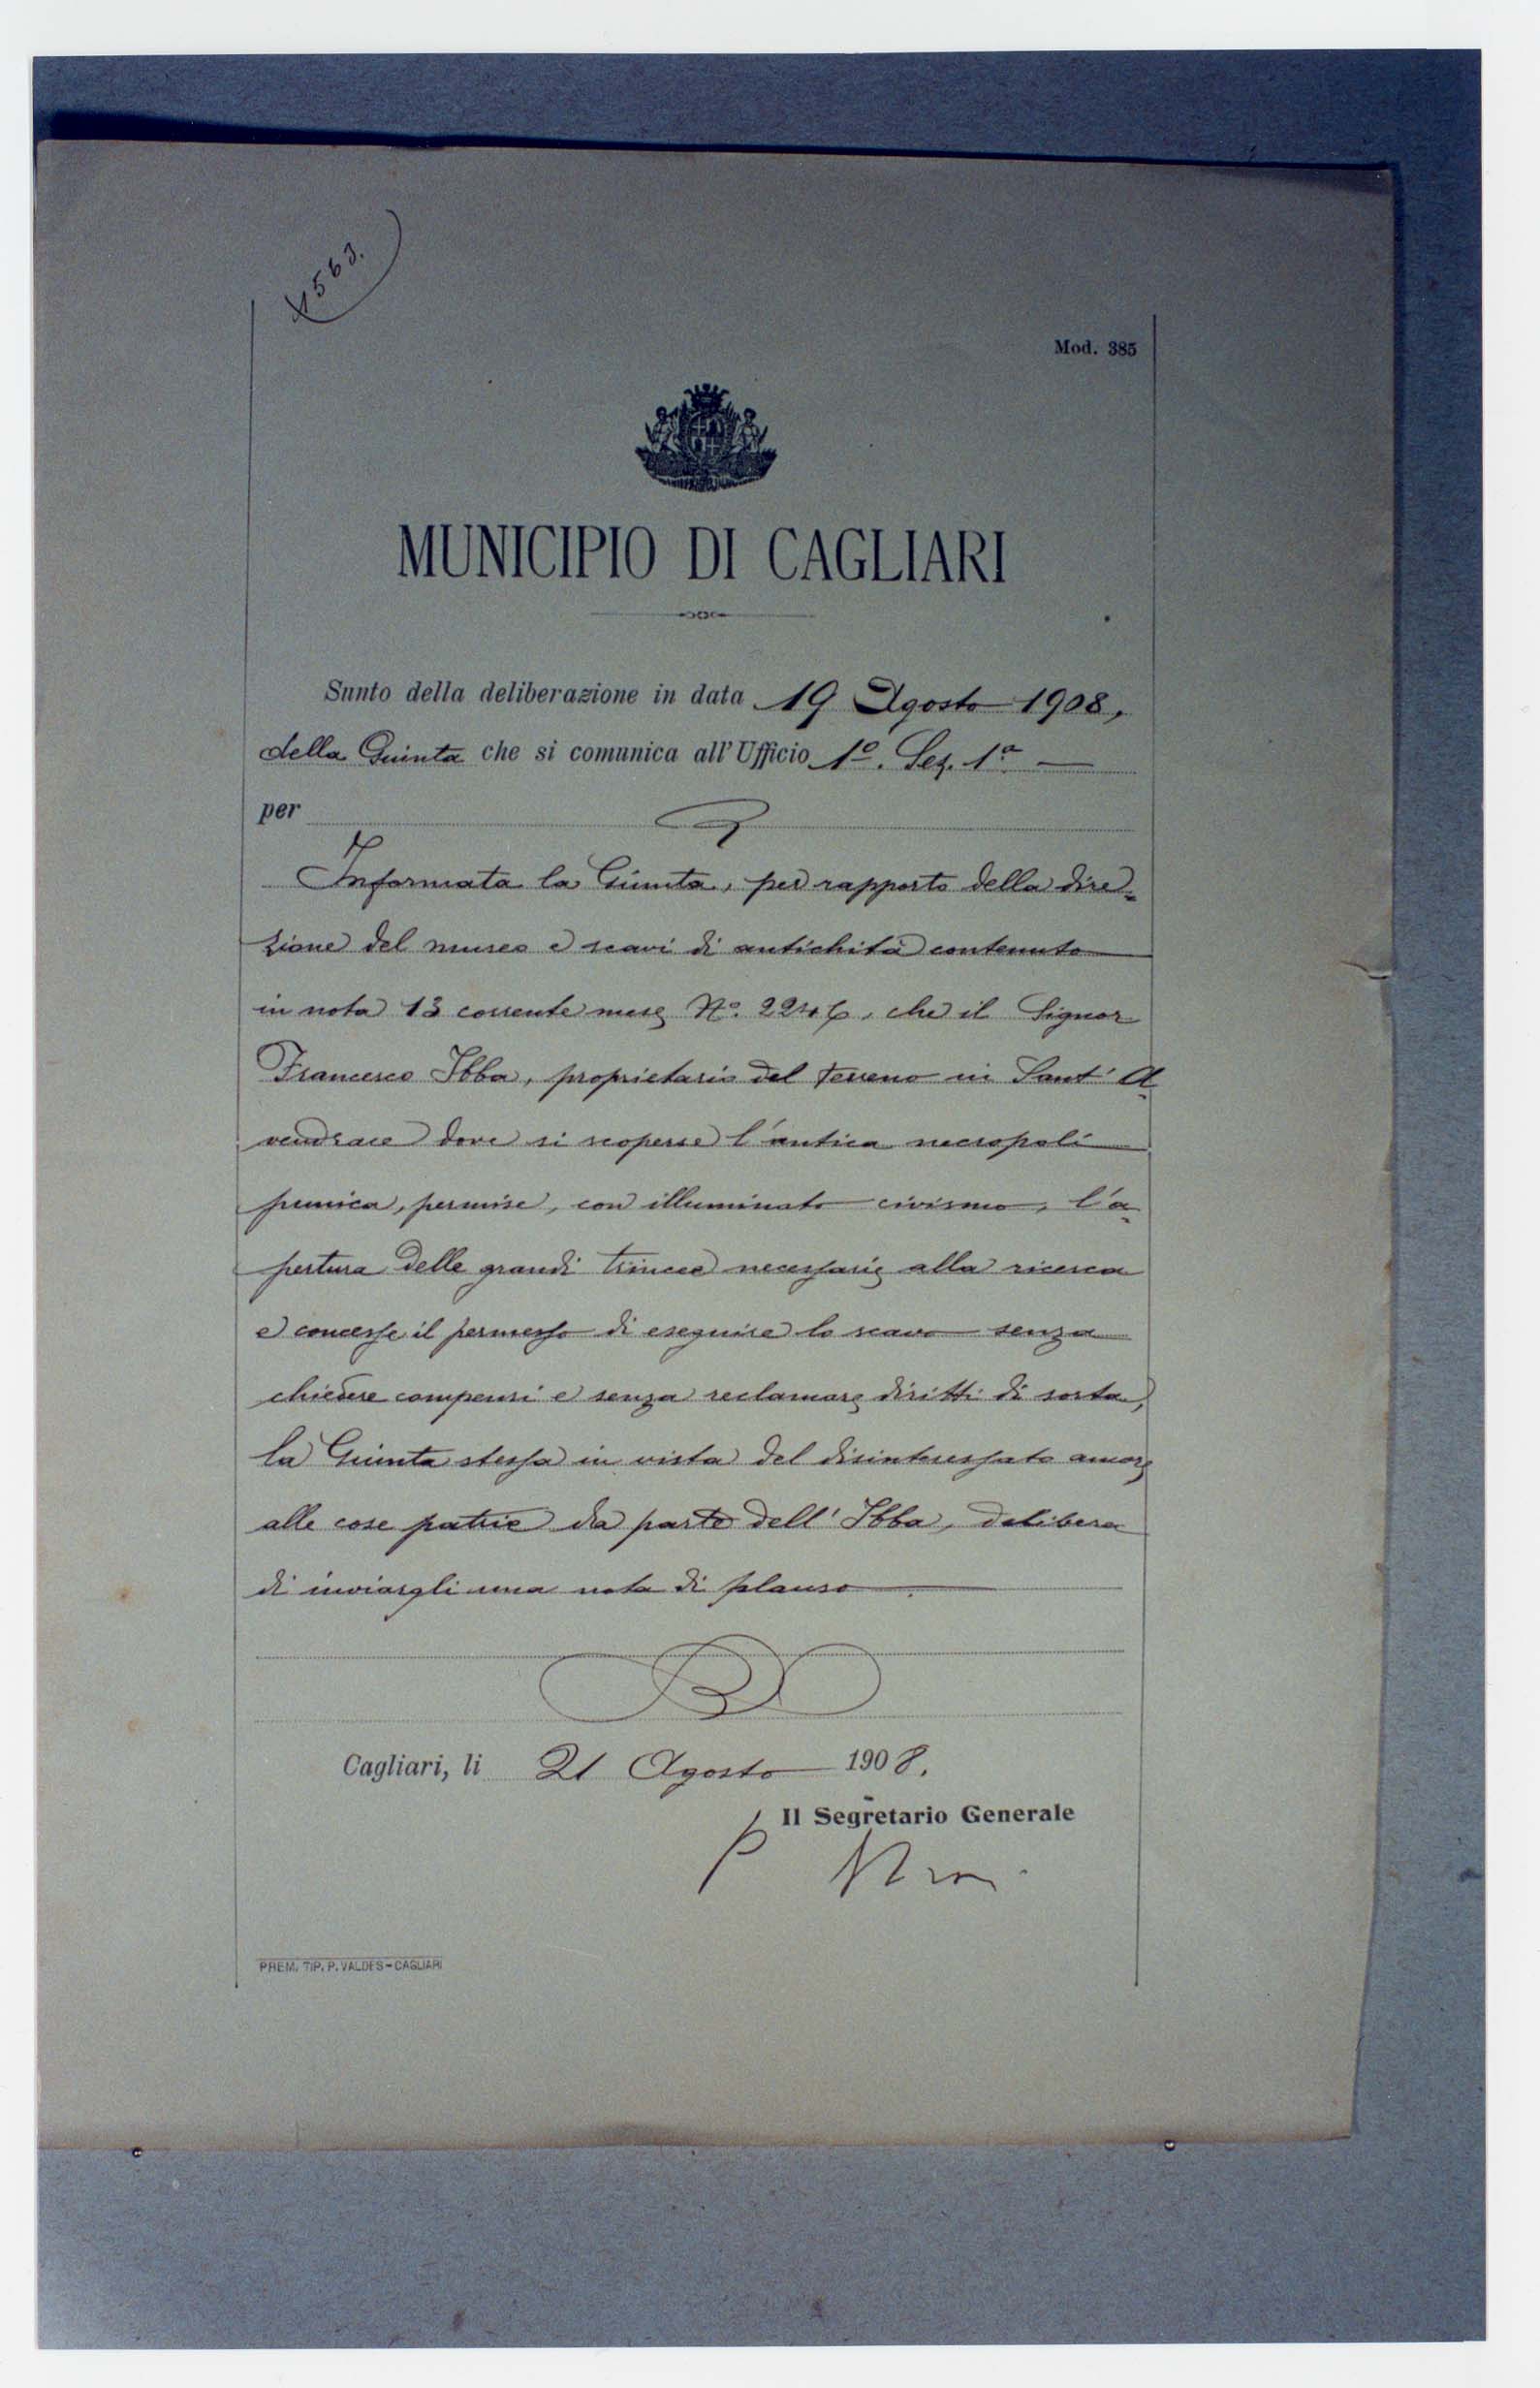 1563.
Mod. 385
MUNICIPIO DI CAGLIARI
Sunto della deliberazione in data 19 Agosto 1908,
della Giunta che si comunica all'Ufficio 1º. Sez. 1ª —
per
Informata la Giunta, per rapporto della dire=
zione del museo e scavi di antichità contenuto
in nota 13 corrente mese Nº. 2246, che il Signor
Francesco Ibba, proprietario del terreno in Sant' A=
vendrace dove si scoperse l'antica necropoli
punica, permise, con illuminato civismo, l'a=
pertura delle grandi trincee necessarie alla ricerca
e concesse il permesso di eseguire lo scavo senza
chiedere compensi e senza reclamare diritti di sorta,
la Giunta stessa in vista del disinteressato amore
alle cose patrie da parte dell' Ibba, delibera
di inviargli una nota di plauso.
Cagliari, li 21 Agosto 1908.
Il Segretario Generale
P
PREM. TIP. P. VALDES-CAGLIARI